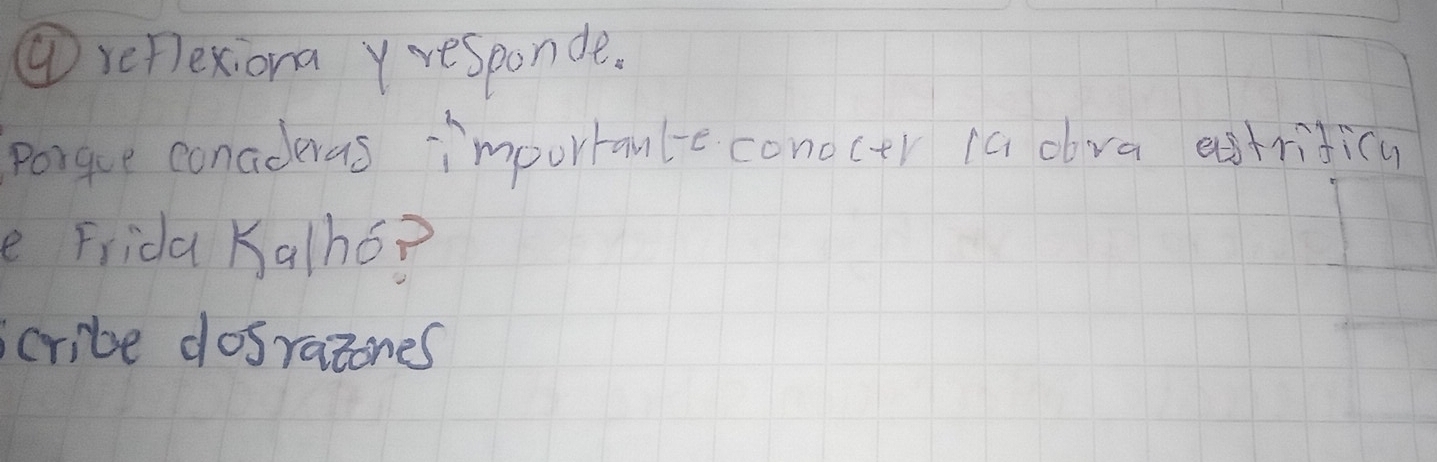 ④ reflexiona y responde.
Porque conaderas importante conocer la obra astrítica
e Frida Kalhó?
scribe dos razones